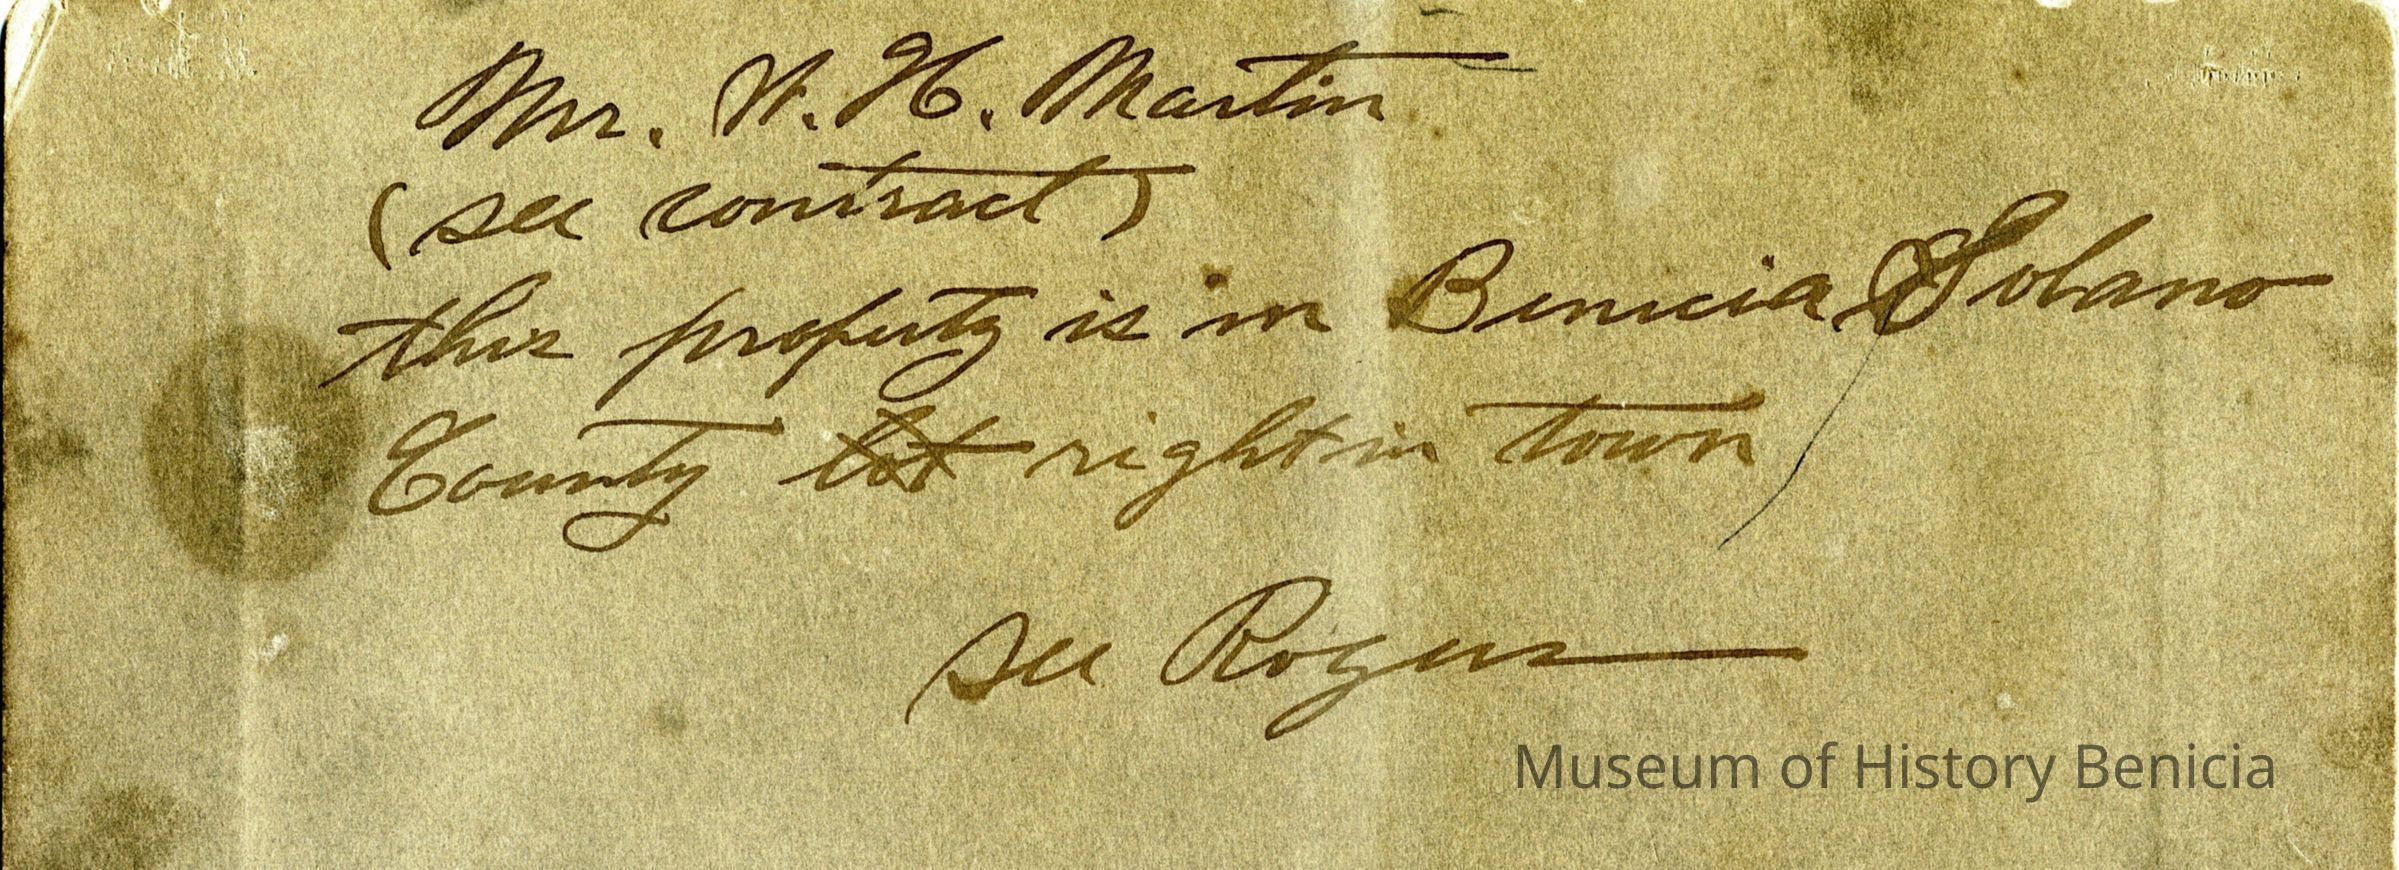 Mr. W. H. Martin
(see contract)
this property is in Benicia, Solano
County lot right in town
see Rogers
Museum of History Benicia